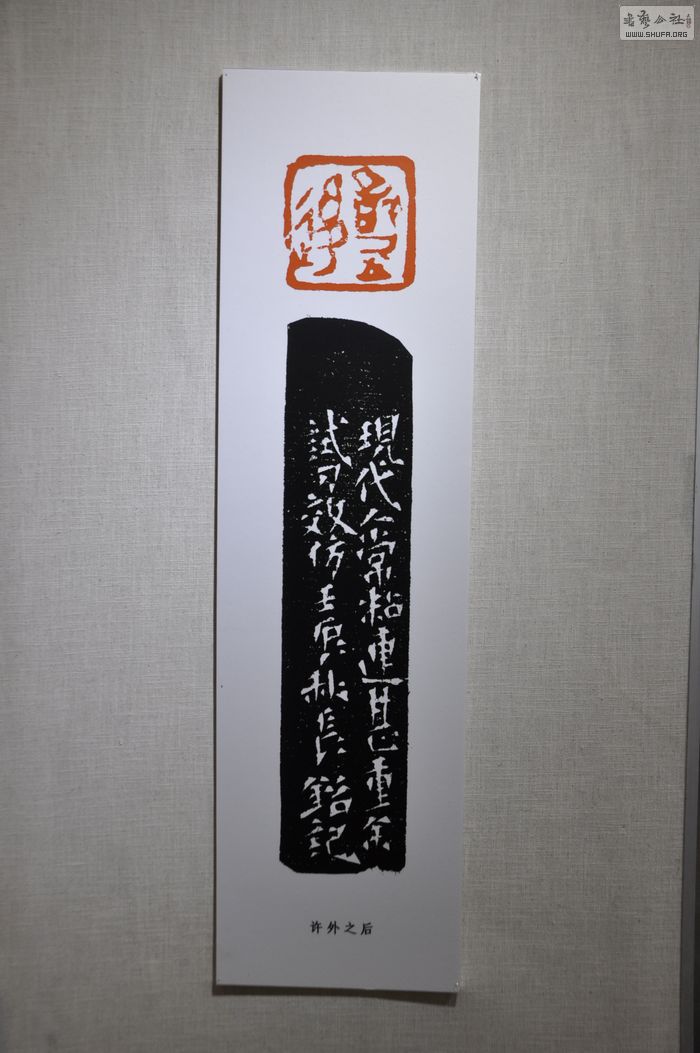 書藝公社
WWW.SHUFA.ORG
現代人常粘連甚重余
試為效仿壬辰秋長銘記
许外之后